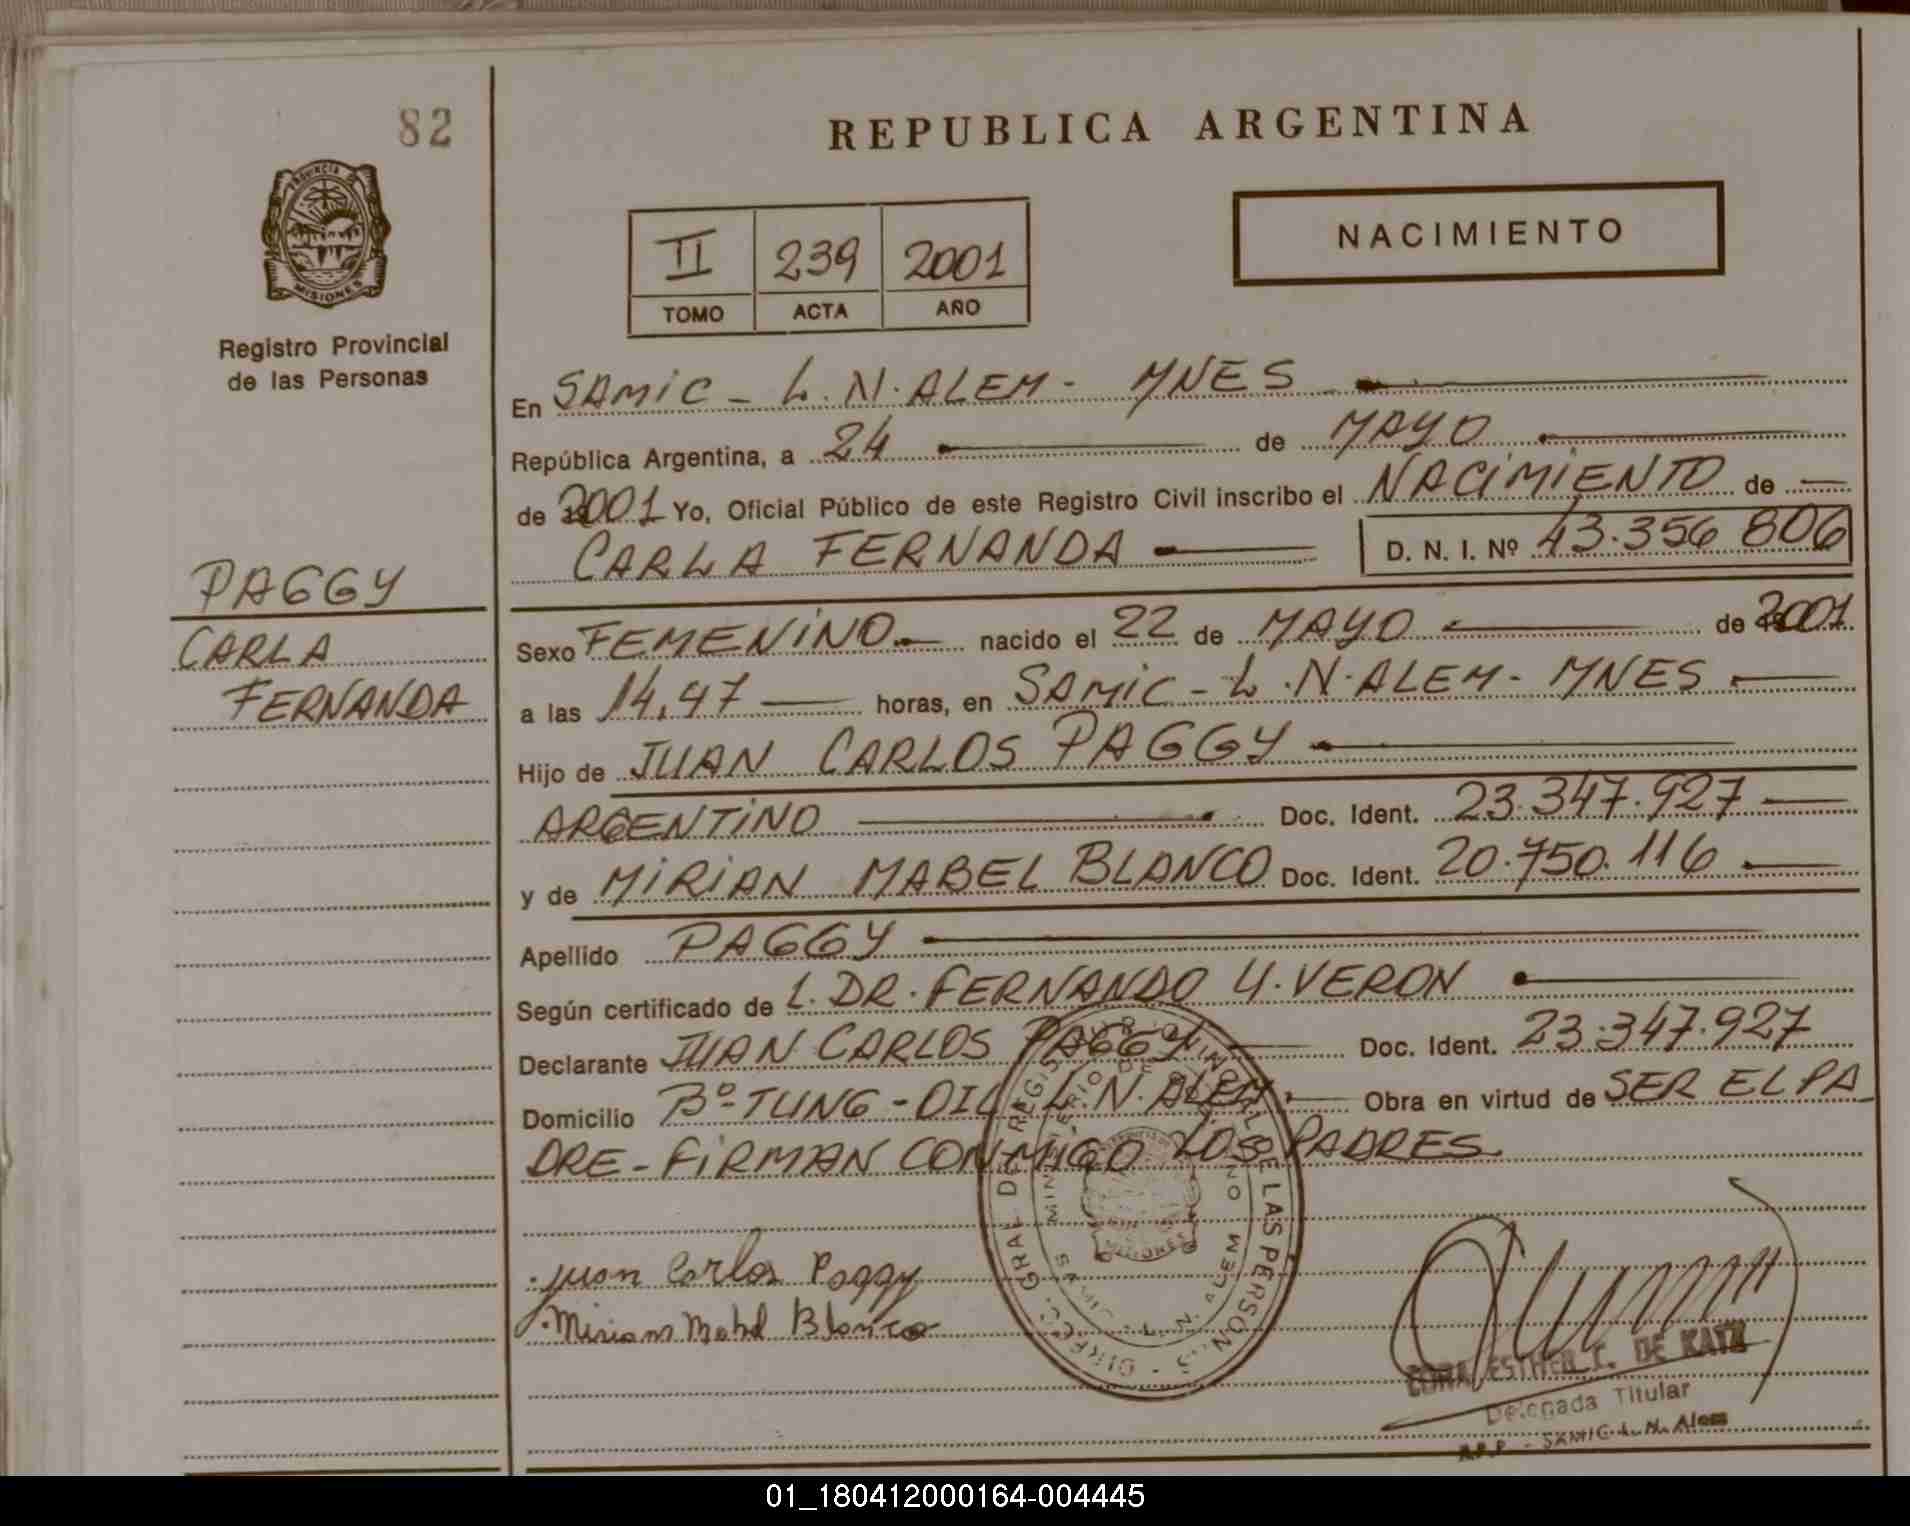 82
REPUBLICA ARGENTINA
NACIMIENTO
II 239 2001
TOMO ACTA AÑO
PROVINCIA DE
MISIONES
Registro Provincial
de las Personas
En SAMIC - L.N. ALEM - MNES
República Argentina, a 24 de MAYO
de 2001 Yo, Oficial Público de este Registro Civil inscribo el NACIMIENTO de
CARLA FERNANDA D. N. I. Nº 43.356 806
PAGGY
CARLA
FERNANDA
Sexo FEMENINO nacido el 22 de MAYO de 2001
a las 14,47 horas, en SAMIC - L.N. ALEM - MNES
Hijo de JUAN CARLOS PAGGY
ARGENTINO Doc. Ident. 23.347.927
y de MIRIAN MABEL BLANCO Doc. Ident. 20.750.116
Apellido PAGGY
Según certificado de L. DR. FERNANDO Y. VERON
Declarante JUAN CARLOS PAGGY Doc. Ident. 23.347.927
Domicilio Bº TUNG-OIL L.N. ALEM Obra en virtud de SER EL PA
DRE - FIRMAN CONMIGO LOS PADRES.
Juan Carlos Paggy
Miriam Mabel Blanco
MISIONES
ESTHER DE KATZ
Delegada Titular
R.P.P - SAMIC L. N. Alem
01_180412000164-004445